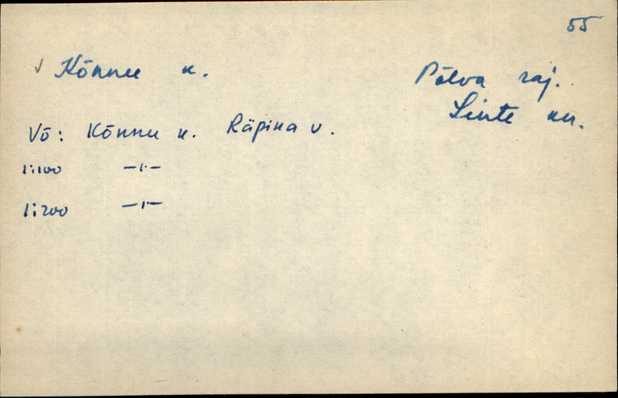 55
✓ Kõnnu k.
Põlva raj.
Leevi kn.
Võ: Kõnnu k. Räpina v.
1:100 —"—
1:200 —"—